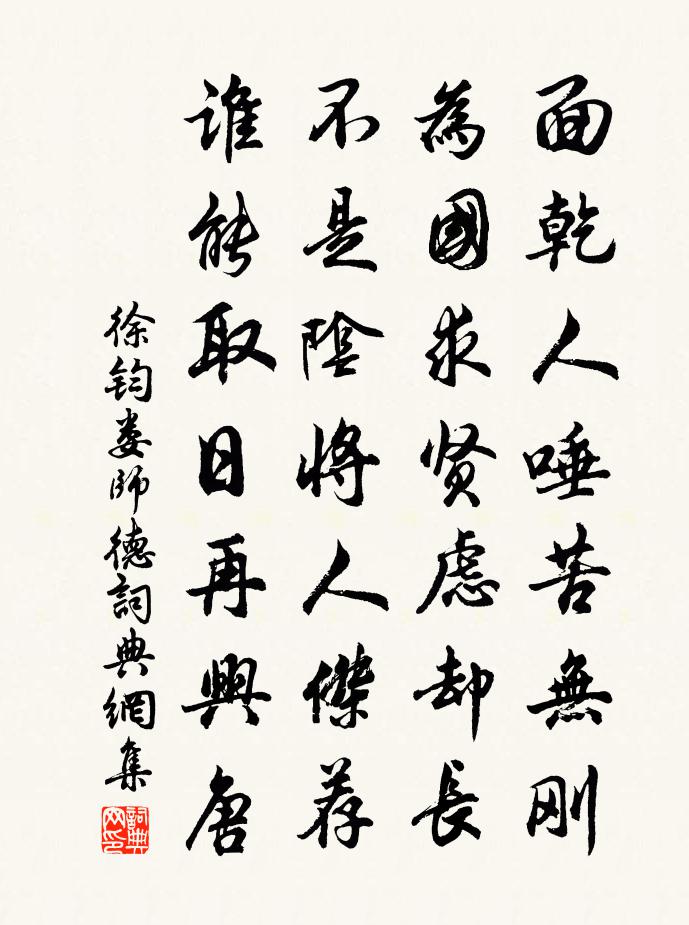 面乾人唾苦無刚
為國求贤慮却長
不是陰將人傑荐
誰能取日再興唐
徐鈞娄師德詞典網集
詞典网印